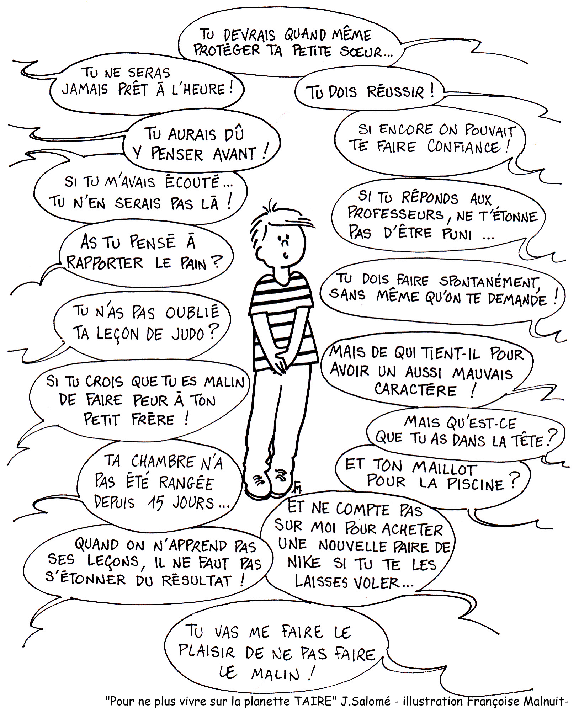 TU DEVRAIS QUAND MÊME
PROTÉGER TA PETITE SŒUR...
TU NE SERAS
JAMAIS PRÊT À L'HEURE !
TU DOIS RÉUSSIR !
TU AURAIS DÛ
Y PENSER AVANT !
SI ENCORE ON POUVAIT
TE FAIRE CONFIANCE !
SI TU M'AVAIS ÉCOUTÉ...
TU N'EN SERAIS PAS LÀ !
SI TU RÉPONDS AUX
PROFESSEURS, NE T'ÉTONNE
PAS D'ÊTRE PUNI ...
AS TU PENSÉ À
RAPPORTER LE PAIN ?
TU DOIS FAIRE SPONTANÉMENT,
SANS MÊME QU'ON TE DEMANDE !
TU N'AS PAS OUBLIÉ
TA LEÇON DE JUDO ?
MAIS DE QUI TIENT-IL POUR
AVOIR UN AUSSI MAUVAIS
CARACTÈRE !
SI TU CROIS QUE TU ES MALIN
DE FAIRE PEUR À TON
PETIT FRÈRE !
MAIS QU'EST-CE
QUE TU AS DANS LA TÊTE ?
TA CHAMBRE N'A
PAS ÉTÉ RANGÉE
DEPUIS 15 JOURS...
ET TON MAILLOT
POUR LA PISCINE ?
ET NE COMPTE PAS
SUR MOI POUR ACHETER
UNE NOUVELLE PAIRE DE
NIKE SI TU TE LES
LAISSES VOLER...
QUAND ON N'APPREND PAS
SES LEÇONS, IL NE FAUT PAS
S'ÉTONNER DU RÉSULTAT !
TU VAS ME FAIRE LE
PLAISIR DE NE PAS FAIRE
LE MALIN !
"Pour ne plus vivre sur la planette TAIRE" J.Salomé - illustration Françoise Malnuit-